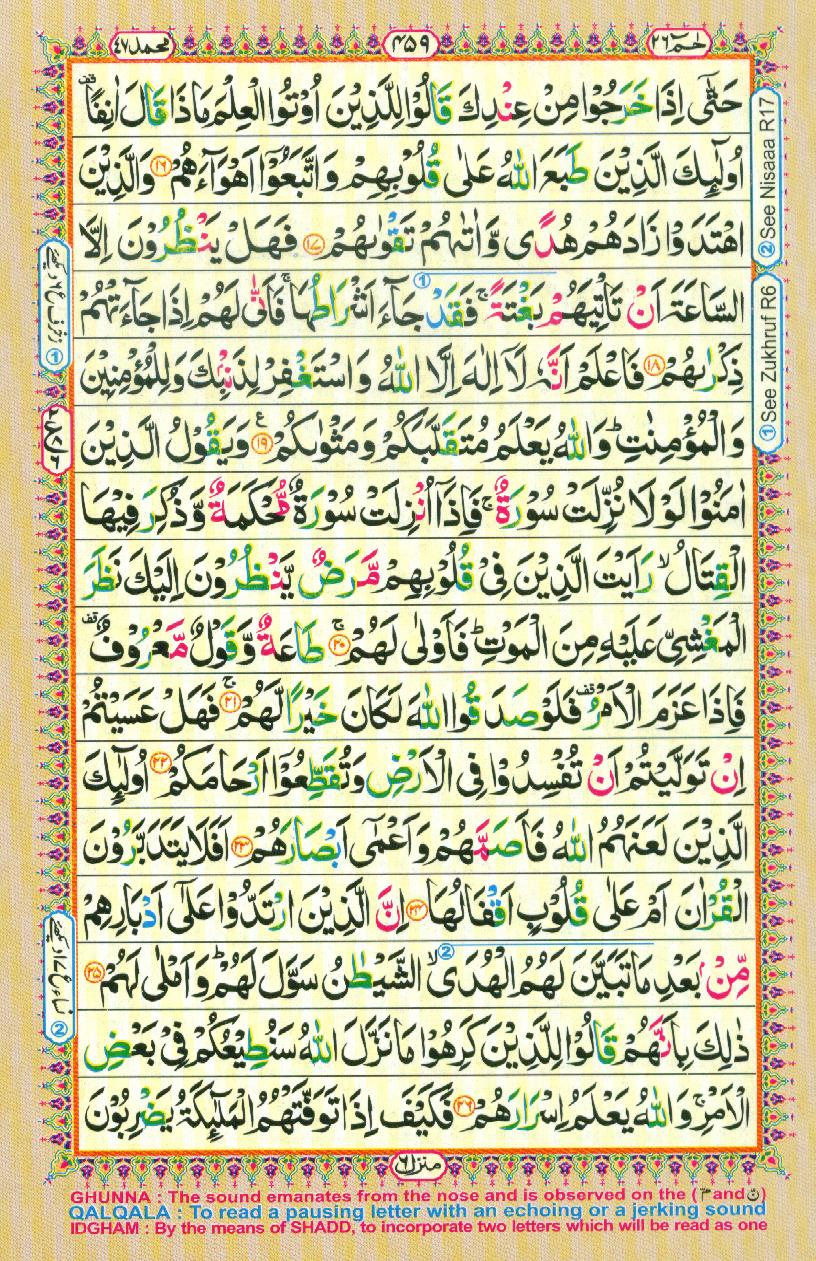 حٰمٓ ۲۶
۴۵۹
محمد ۴۷
حَتّٰۤی اِذَا خَرَجُوْا مِنْ عِنْدِكَ قَالُوْا لِلَّذِیْنَ اُوْتُوا الْعِلْمَ مَاذَا قَالَ اٰنِفًا ۫
اُولٰٓىِٕكَ الَّذِیْنَ طَبَعَ اللّٰهُ عَلٰی قُلُوْبِهِمْ وَاتَّبَعُوْۤا اَهْوَآءَهُمْ ﴿۱۶﴾ وَالَّذِیْنَ
اهْتَدَوْا زَادَهُمْ هُدًی وَّاٰتٰىهُمْ تَقْوٰىهُمْ ﴿۱۷﴾ فَهَلْ یَنْظُرُوْنَ اِلَّا
السَّاعَةَ اَنْ تَاْتِیَهُمْ بَغْتَةً ۚ فَقَدْ جَآءَ اَشْرَاطُهَا ۚ فَاَنّٰی لَهُمْ اِذَا جَآءَتْهُمْ
ذِكْرٰىهُمْ ﴿۱۸﴾ فَاعْلَمْ اَنَّهٗ لَاۤ اِلٰهَ اِلَّا اللّٰهُ وَاسْتَغْفِرْ لِذَنْۢبِكَ وَلِلْمُؤْمِنِیْنَ
وَالْمُؤْمِنٰتِ ؕ وَاللّٰهُ یَعْلَمُ مُتَقَلَّبَكُمْ وَمَثْوٰىكُمْ ﴿۱۹﴾ وَیَقُوْلُ الَّذِیْنَ
اٰمَنُوْا لَوْلَا نُزِّلَتْ سُوْرَةٌ ۚ فَاِذَاۤ اُنْزِلَتْ سُوْرَةٌ مُّحْكَمَةٌ وَّذُكِرَ فِیْهَا
الْقِتَالُ ۙ رَاَیْتَ الَّذِیْنَ فِیْ قُلُوْبِهِمْ مَّرَضٌ یَّنْظُرُوْنَ اِلَیْكَ نَظَرَ
الْمَغْشِیِّ عَلَیْهِ مِنَ الْمَوْتِ ؕ فَاَوْلٰی لَهُمْ ﴿۲۰﴾ۚ طَاعَةٌ وَّقَوْلٌ مَّعْرُوْفٌ ۫
فَاِذَا عَزَمَ الْاَمْرُ ۫ فَلَوْ صَدَقُوا اللّٰهَ لَكَانَ خَیْرًا لَّهُمْ ﴿۲۱﴾ۚ فَهَلْ عَسَیْتُمْ
اِنْ تَوَلَّیْتُمْ اَنْ تُفْسِدُوْا فِی الْاَرْضِ وَتُقَطِّعُوْۤا اَرْحَامَكُمْ ﴿۲۲﴾ اُولٰٓىِٕكَ
الَّذِیْنَ لَعَنَهُمُ اللّٰهُ فَاَصَمَّهُمْ وَاَعْمٰۤی اَبْصَارَهُمْ ﴿۲۳﴾ اَفَلَا یَتَدَبَّرُوْنَ
الْقُرْاٰنَ اَمْ عَلٰی قُلُوْبٍ اَقْفَالُهَا ﴿۲۴﴾ اِنَّ الَّذِیْنَ ارْتَدُّوْا عَلٰۤی اَدْبَارِهِمْ
مِّنْۢ بَعْدِ مَا تَبَیَّنَ لَهُمُ الْهُدَی ۙ الشَّیْطٰنُ سَوَّلَ لَهُمْ ؕ وَاَمْلٰی لَهُمْ ﴿۲۵﴾
ذٰلِكَ بِاَنَّهُمْ قَالُوْا لِلَّذِیْنَ كَرِهُوْا مَا نَزَّلَ اللّٰهُ سَنُطِیْعُكُمْ فِیْ بَعْضِ
الْاَمْرِ ۚ وَاللّٰهُ یَعْلَمُ اِسْرَارَهُمْ ﴿۲۶﴾ فَكَیْفَ اِذَا تَوَفَّتْهُمُ الْمَلٰٓىِٕكَةُ یَضْرِبُوْنَ
② See Nisaaa R17
① See Zukhruf R6
منزل ۶
GHUNNA : The sound emanates from the nose and is observed on the ( مّ and نّ )
QALQALA : To read a pausing letter with an echoing or a jerking sound
IDGHAM : By the means of SHADD, to incorporate two letters which will be read as one